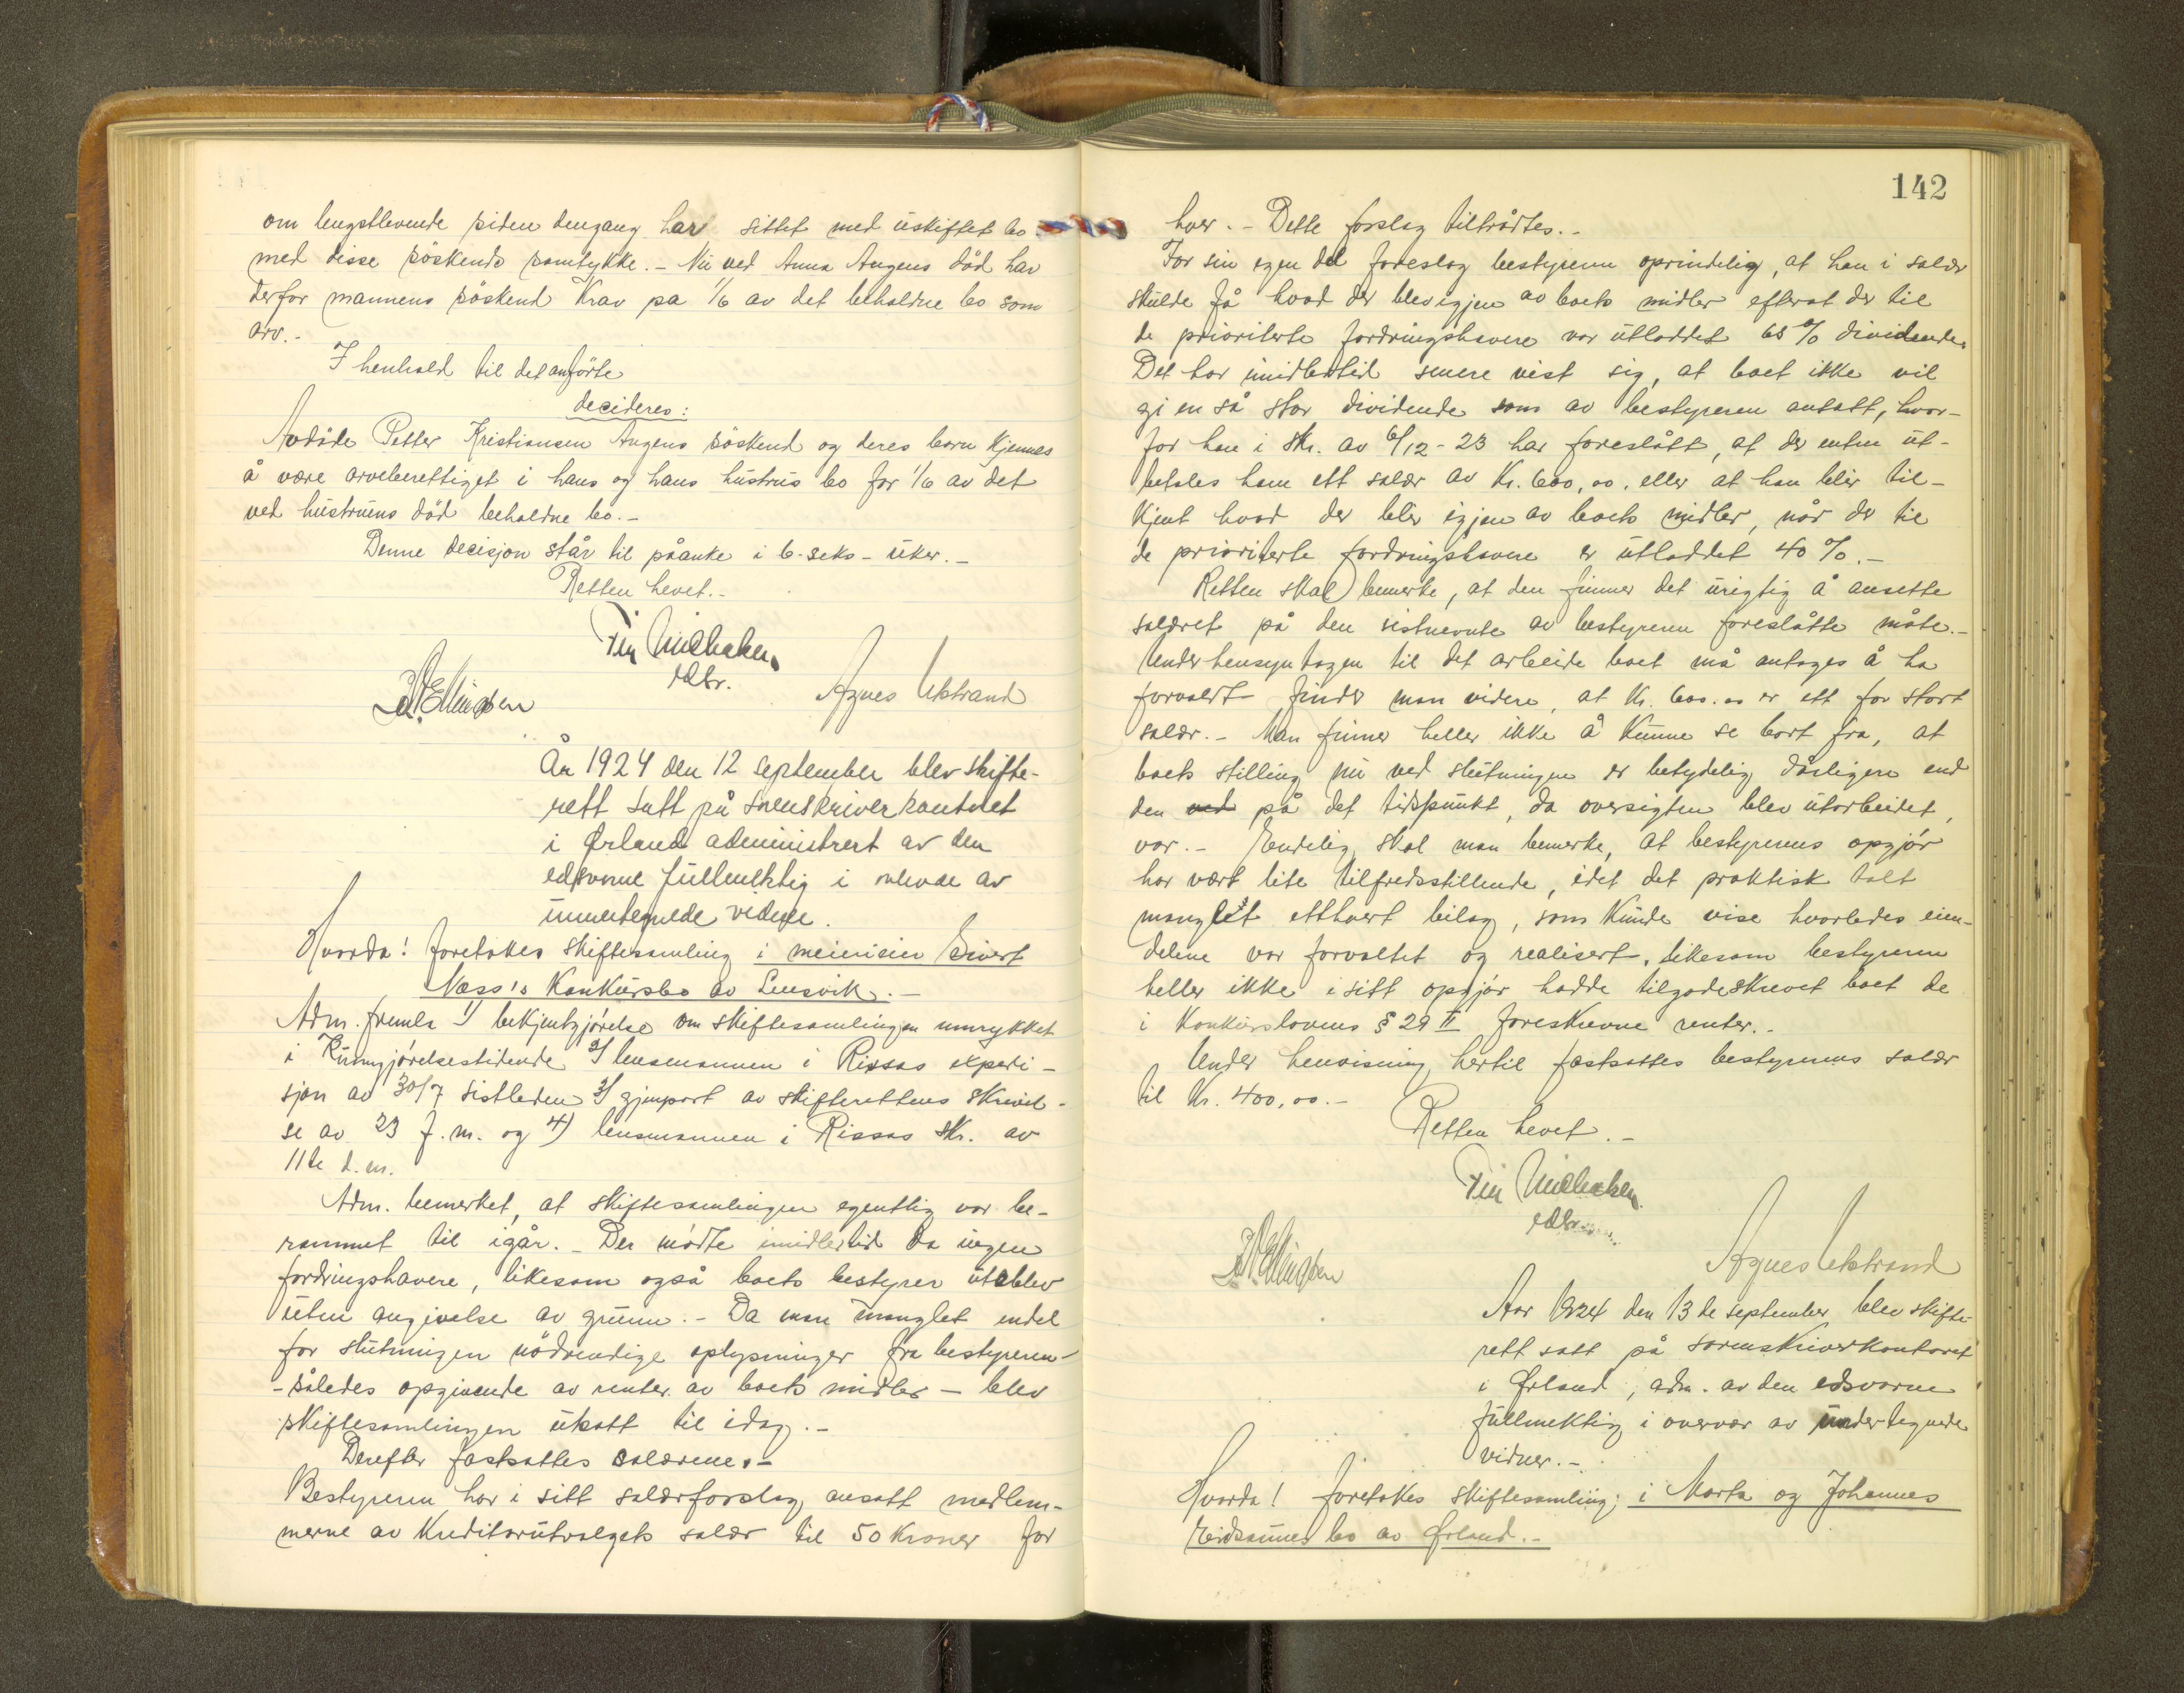 om lengstlevende siden dengang har sittet med uskiftet bo
med disse söskends samtykke. - Nu ved Anna Augens död har
derfor mannens söskend krav på 1/6 av det beholdne bo som
arv. -
I henhold til det anförte
decideres:
Avdöde Petter Kristiansen Augens söskend og deres barn kjennes
å være arveberettiget i hans og hans hustrus bo for 1/6 av det
ved hustruens död beholdne bo. -
Denne decisjon står til påanke i 6-seks-uker. -
Retten hevet. -
edsv.
Ellingsen
Agnes Ukstrand
År 1924 den 12 september blev skifte-
rett satt på sorenskriverkontoret
i Ørland administrert av den
edsvorne fullmektig i overvær av
undertegnede vidner.
Hvorda! foretokes skiftesamling i meierieier Sivert
Næss's Konkursbo av Lensvik. -
Adm. fremla 1/ bekjentgjörelse om skiftesamlingen innrykket
i Kunngjörelsestidende 2/ lensmannen i Rissas expedi-
sjon av 30/7 sistleden 3/ gjenpart av skifterettens skrivel-
se av 23 f.m. og 4) lensmannen i Rissas skr. av
11te d.m.
Adm. bemerket, at skiftesamlingen egentlig var be-
rammet til igår. - Der mödte imidlertid da ingen
fordringshavere, likesom også boets bestyrer uteblev
uten angivelse av grunn. - Da man manglet endel
for slutningen nödvendige oplysninger fra bestyreren -
- således opgivende av renter av boets midler - blev
skiftesamlingen utsatt til idag. -
Derefter fastsattes salærene. -
Bestyreren har i sitt salærforslag ansatt medlem-
merne av kreditorutvalgets salær til 50 kroner for
142
hver. - Dette forslag tiltrådtes. -
For sin egen del foreslog bestyreren oprindelig, at han i salær
skulde få hvad der blev igjen av boets midler efterat der til
de prioriterte fordringshavere var utloddet 65 % dividende.
Det har imidlertid senere vist sig, at boet ikke vil
gi en så stor dividende som av bestyreren antatt, hvor-
for han i skr. av 6/12-23 har foreslått, at der enten ut-
betales ham ett salær av Kr. 600,00. eller at han blir til-
kjent hvad der blir igjen av boets midler, når der til
de prioriterte fordringshavere er utloddet 40 %. -
Retten skal bemerke, at den finner det urigtig å ansette
salæret på den sistnevnte av bestyreren foreslåtte måte. -
Under hensyntagen til det arbeide boet må antages å ha
forvoldt finder man videre, at Kr. 600.00 er ett for stort
salær. - Man finner heller ikke å kunne se bort fra, at
boets stilling nu ved slutningen er betydelig dårligere end
den ved på det tidspunkt, da oversigten blev utarbeidet,
var. - Endelig skal man bemerke, at bestyrerens opgjör
har vært lite tilfredsstillende, idet det praktisk talt
manglet etthvert bilag, som kunde vise hvorledes eien-
delene var forvaltet og realisert, likesom bestyreren
heller ikke i sitt opgjör hadde tilgodeskrevet boet de
i Konkurslovens § 29 II foreskrevne renter. -
Under henvisning hertil fastsattes bestyrerens salær
til Kr. 400,00. -
Retten hevet. -
edsv.
Ellingsen
Agnes Ukstrand
Aar 1924 den 13de september blev skifte-
rett satt på sorenskriverkontoret
i Ørland, adm. av den edsvorne
fullmektig i overvær av undertegnede
vidner. -
Hvorda! foretokes skiftesamling; i Marta og Johannes
Eidsaunes bo av Ørland. -